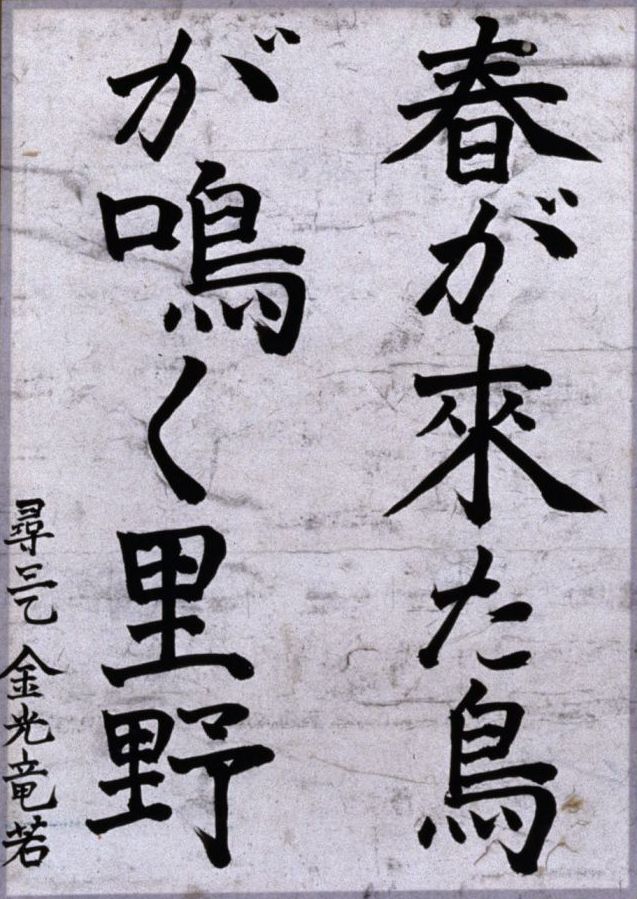 春が來た鳥
が鳴く里野
尋三乙 金光竜若